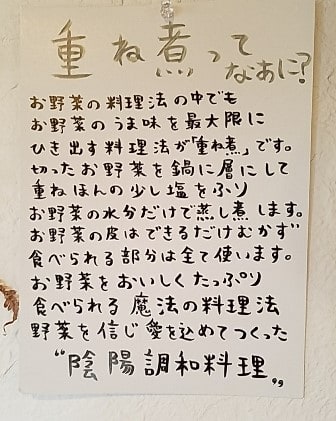 重ね煮って
なあに?
お野菜の料理法の中でも
お野菜のうま味を最大限に
ひき出す料理法が「重ね煮」です。
切ったお野菜を鍋に層にして
重ねほんの少し塩をふり
お野菜の水分だけで蒸し煮します。
お野菜の皮はできるだけむかず
食べられる部分は全て使います。
お野菜をおいしくたっぷり
食べられる魔法の料理法
野菜を信じ愛を込めてつくった
“陰陽調和料理”